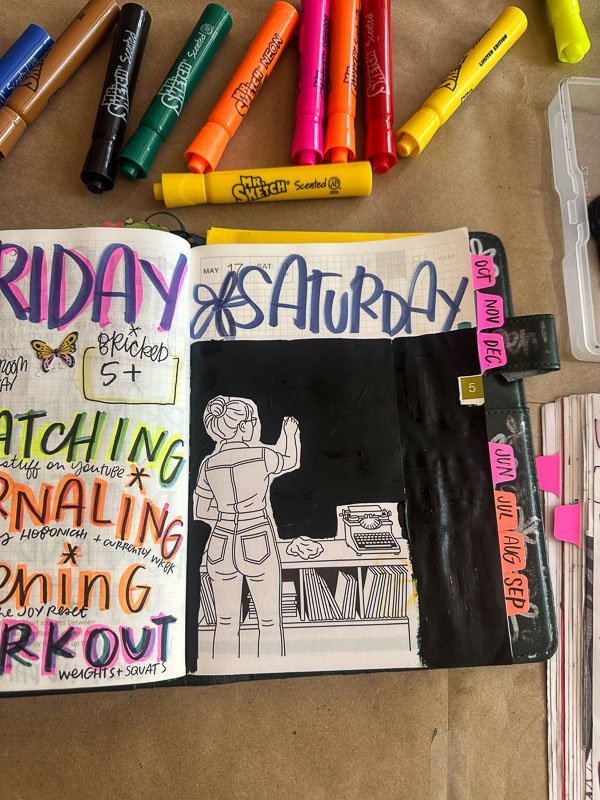 SKETCH
MR. SKETCH Scented
MR. SKETCH NEON
MR. SKETCH® Scented AP
RIDAY
Bricked
5+
ATCHING
stuff on youtube
RNALING
HOBONICH + CURRENTLY WEEK
ENING
The JOY Reset
RKOUT
WEIGHTS + SQUATS
MAY 17 SAT
SATURDAY
OCT
NOV
DEC
5
JUN
JUL
AUG
SEP